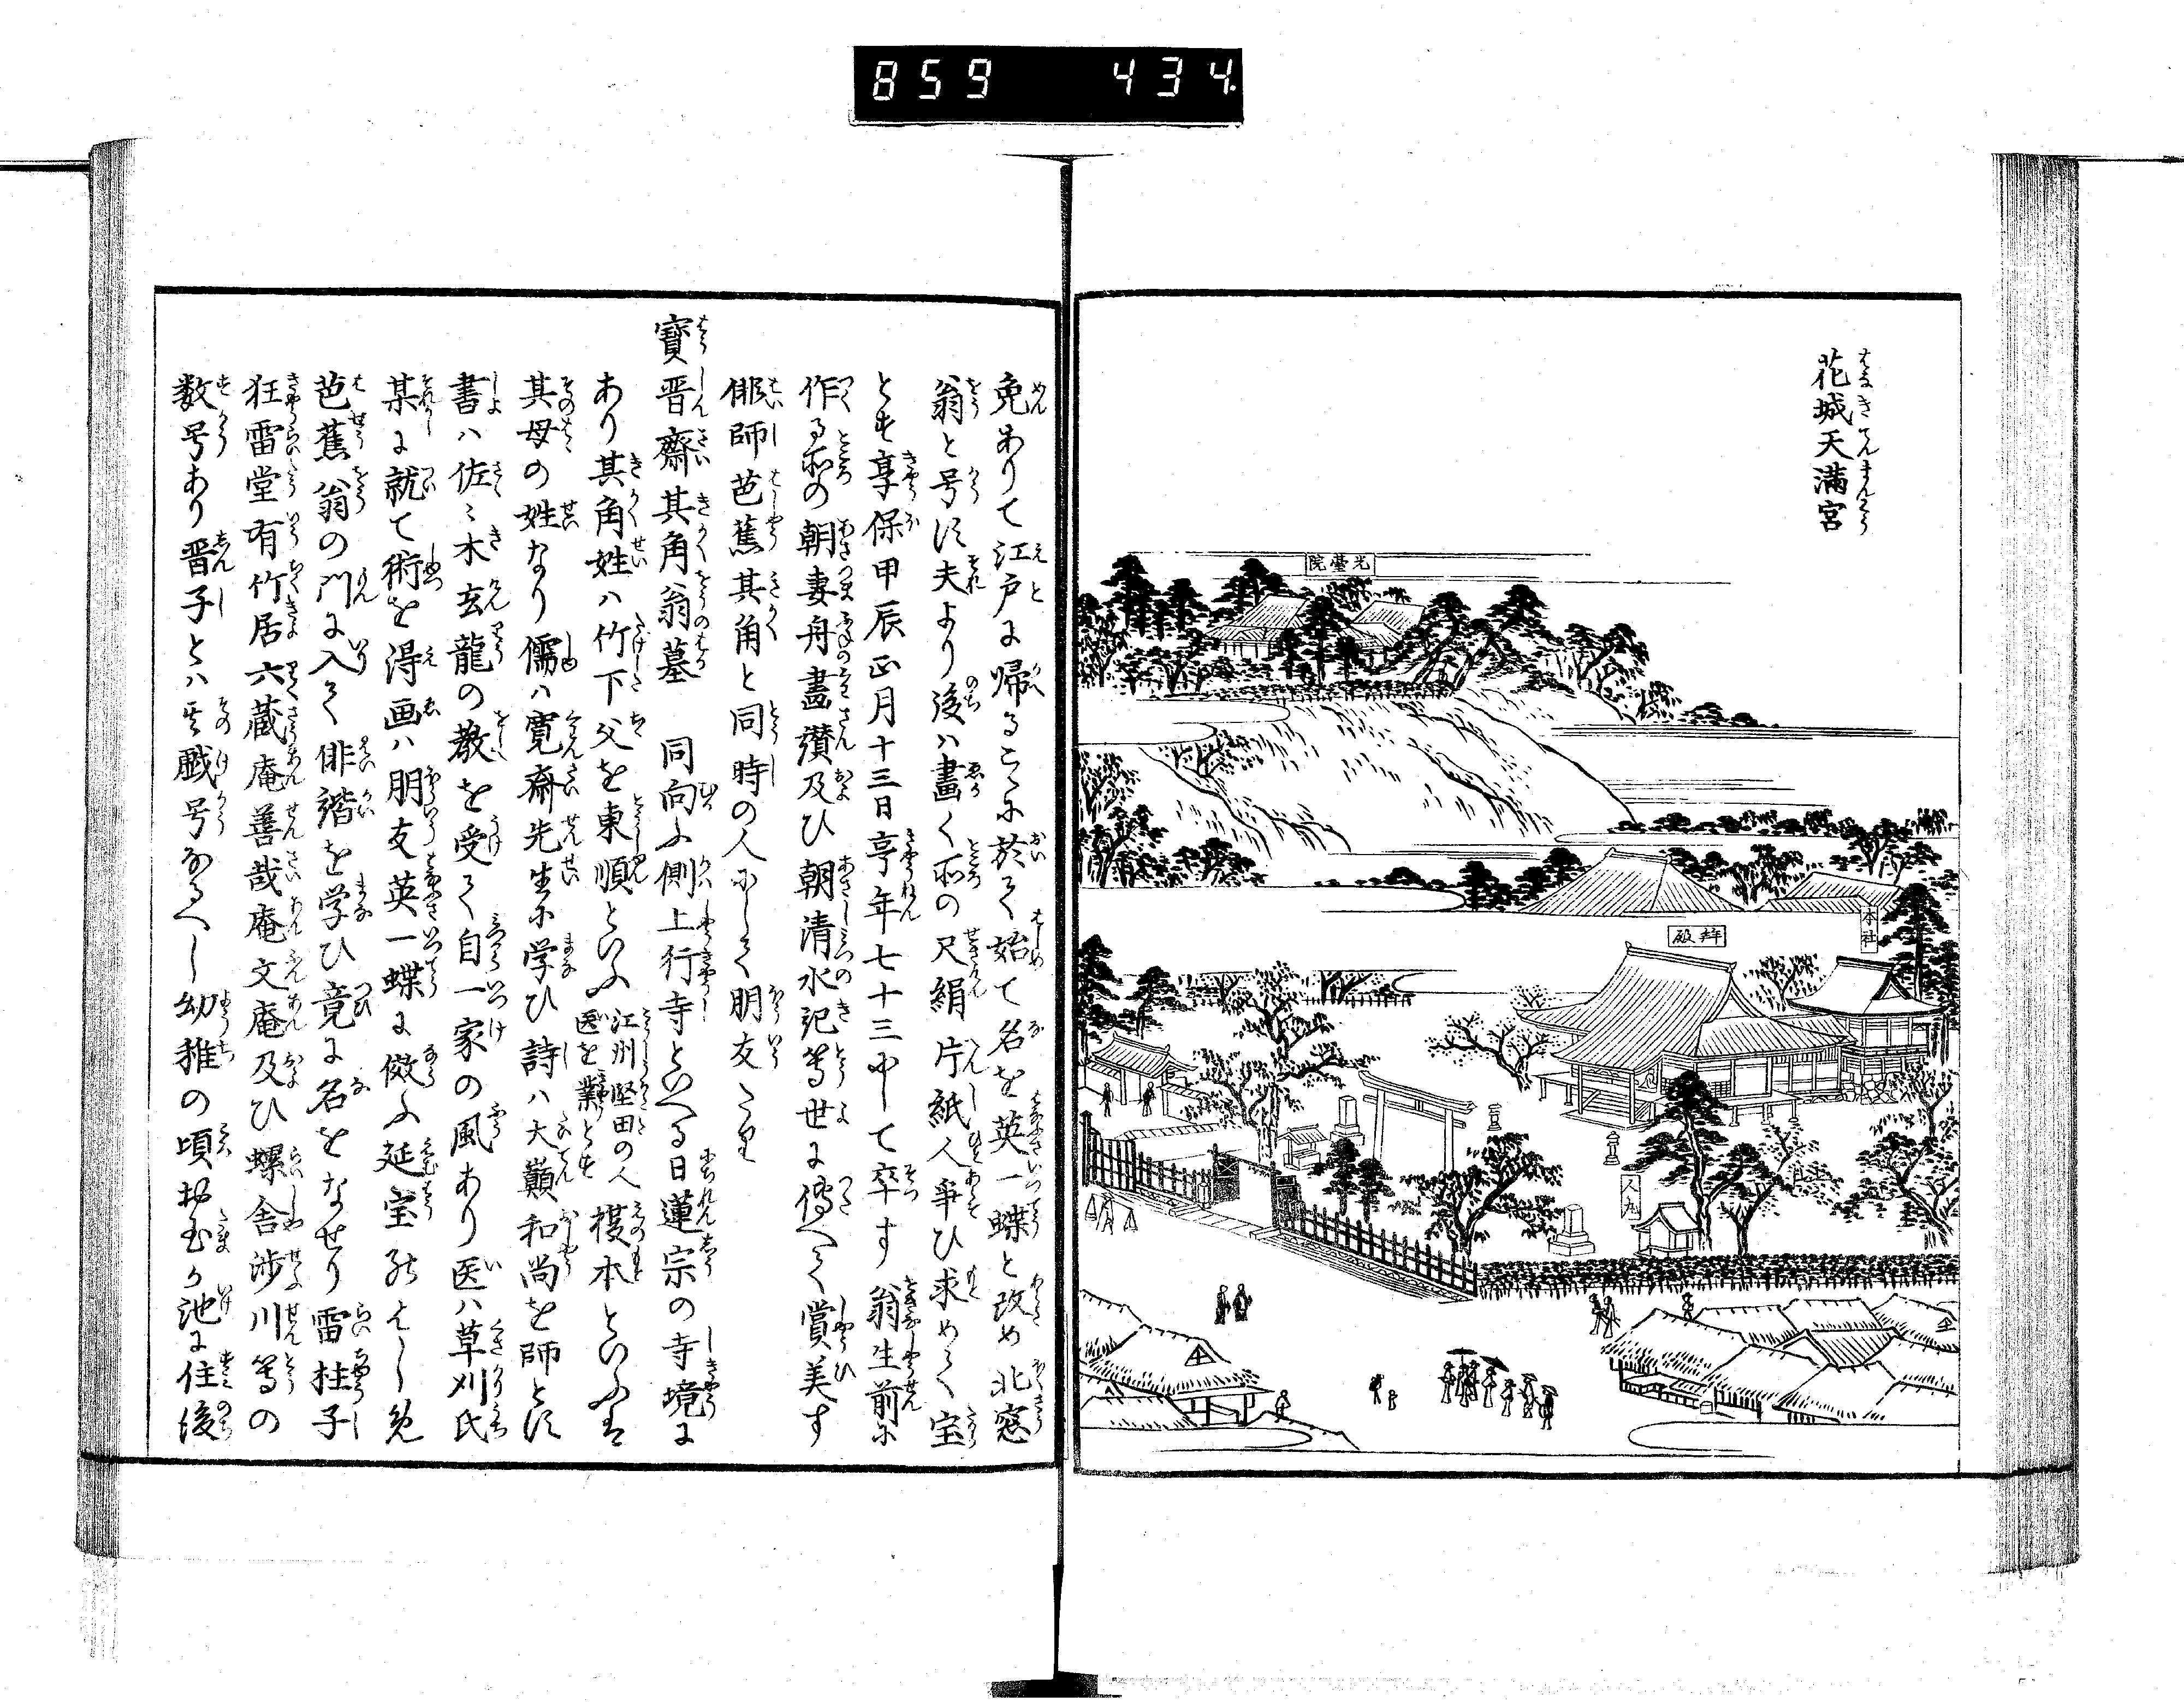 859 434
花城天満宮
光臺院
本社
拜殿
人丸
免ありて江戸に帰るこゝに於て始て名を英一蝶と改め北窓
翁と号す夫より後ハ畫く所の尺絹片紙人爭ひ求めて宝
とす享保甲辰正月十三日享年七十三にして卒す翁生前に
作る所の朝妻舟畫讃及ひ朝清水記等世に傳へて賞美す
俳師芭蕉其角と同時の人にして朋友たり
寶晋齋其角翁墓 同向ふ側上行寺といへる日蓮宗の寺境に
あり其角姓ハ竹下父を東順といふ 江州堅田の人 医を業とす 榎本といふは
其母の姓なり儒ハ寛齋先生に学ひ詩ハ大顚和尚を師とす
書ハ佐々木玄龍の教を受て自一家の風あり医ハ草刈氏
某に就て術を得画ハ朋友英一蝶に傚ふ延宝のはしめ
芭蕉翁の門に入て俳諧を学ひ竟に名をなせり雷柱子
狂雷堂有竹居六蔵庵善哉庵文庵及ひ螺舎渉川等の
数号あり晋子とハ其戯号なるへし幼稚の頃お玉か池に住後